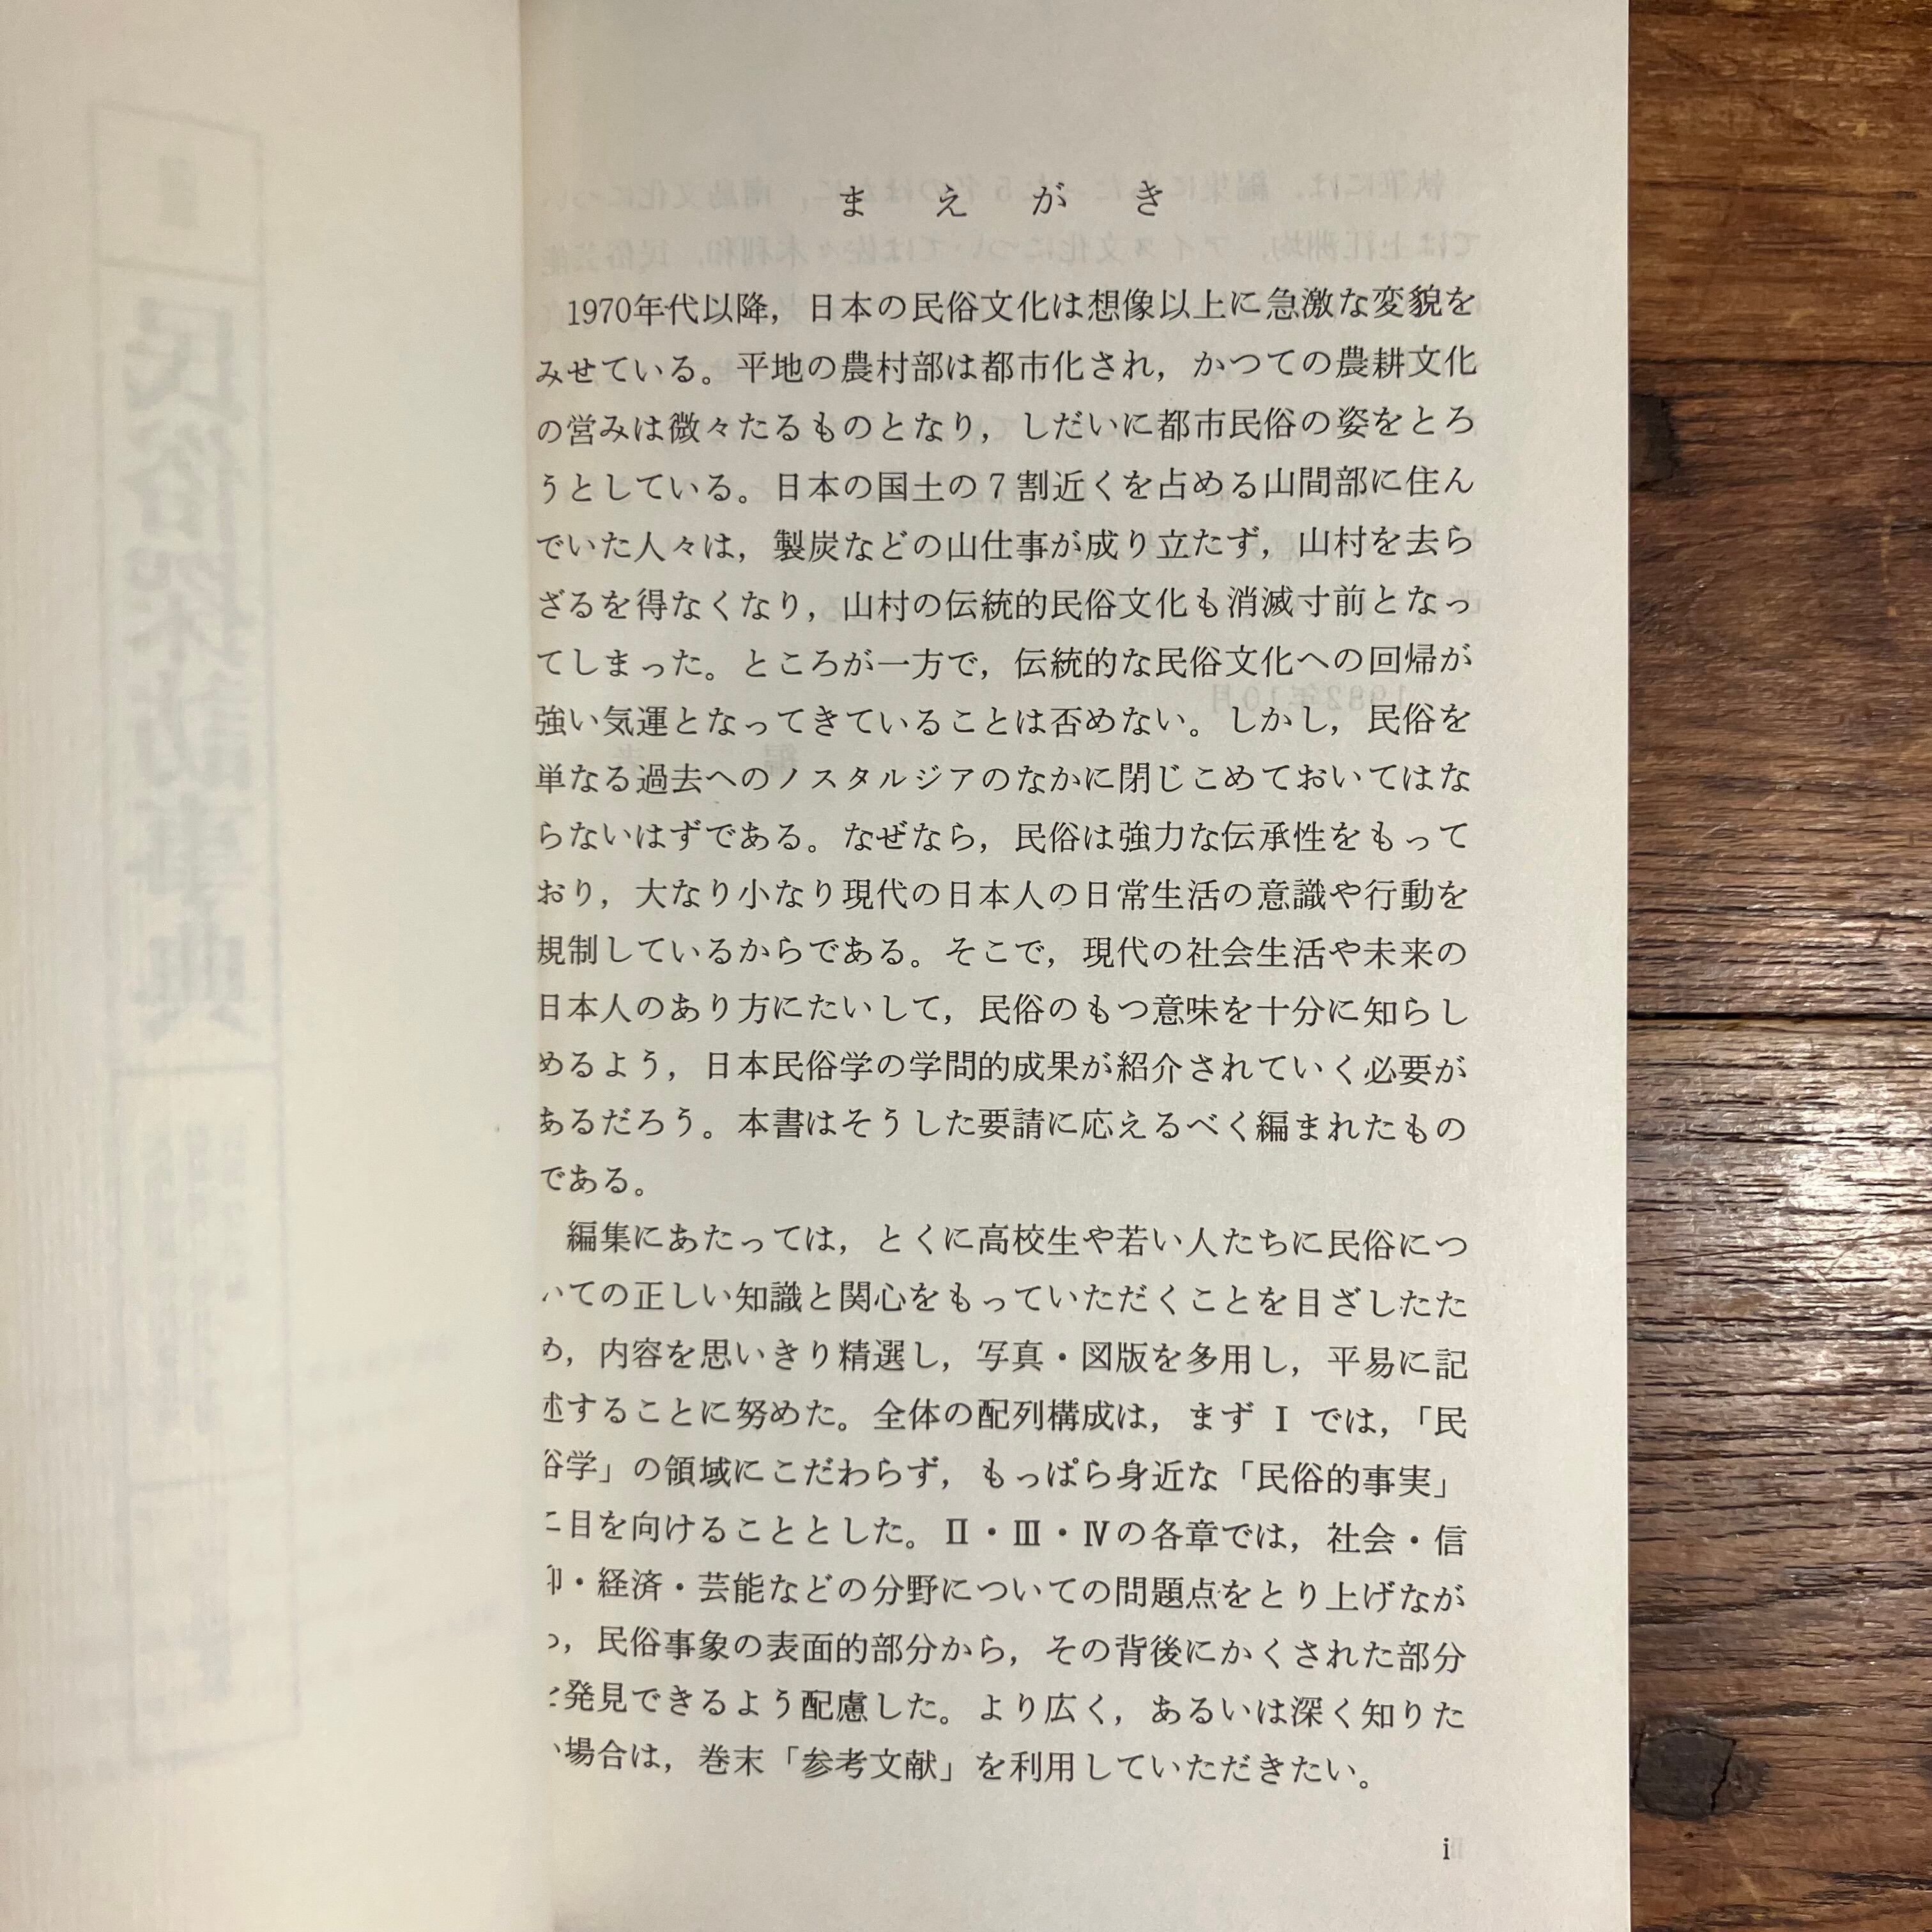 まえがき
1970年代以降，日本の民俗文化は想像以上に急激な変貌を
みせている。平地の農村部は都市化され，かつての農耕文化
の営みは微々たるものとなり，しだいに都市民俗の姿をとろ
うとしている。日本の国土の7割近くを占める山間部に住ん
でいた人々は，製炭などの山仕事が成り立たず，山村を去ら
ざるを得なくなり，山村の伝統的民俗文化も消滅寸前となっ
てしまった。ところが一方で，伝統的な民俗文化への回帰が
強い気運となってきていることは否めない。しかし，民俗を
単なる過去へのノスタルジアのなかに閉じこめておいてはな
らないはずである。なぜなら，民俗は強力な伝承性をもって
おり，大なり小なり現代の日本人の日常生活の意識や行動を
規制しているからである。そこで，現代の社会生活や未来の
日本人のあり方にたいして，民俗のもつ意味を十分に知らし
めるよう，日本民俗学の学問的成果が紹介されていく必要が
あるだろう。本書はそうした要請に応えるべく編まれたもの
である。
編集にあたっては，とくに高校生や若い人たちに民俗につ
いての正しい知識と関心をもっていただくことを目ざしたた
め，内容を思いきり精選し，写真・図版を多用し，平易に記
述することに努めた。全体の配列構成は，まずⅠでは，「民
俗学」の領域にこだわらず，もっぱら身近な「民俗的事実」
に目を向けることとした。Ⅱ・Ⅲ・Ⅳの各章では，社会・信
仰・経済・芸能などの分野についての問題点をとり上げなが
ら，民俗事象の表面的部分から，その背後にかくされた部分
を発見できるよう配慮した。より広く，あるいは深く知りた
い場合は，巻末「参考文献」を利用していただきたい。
i
民俗探訪事典